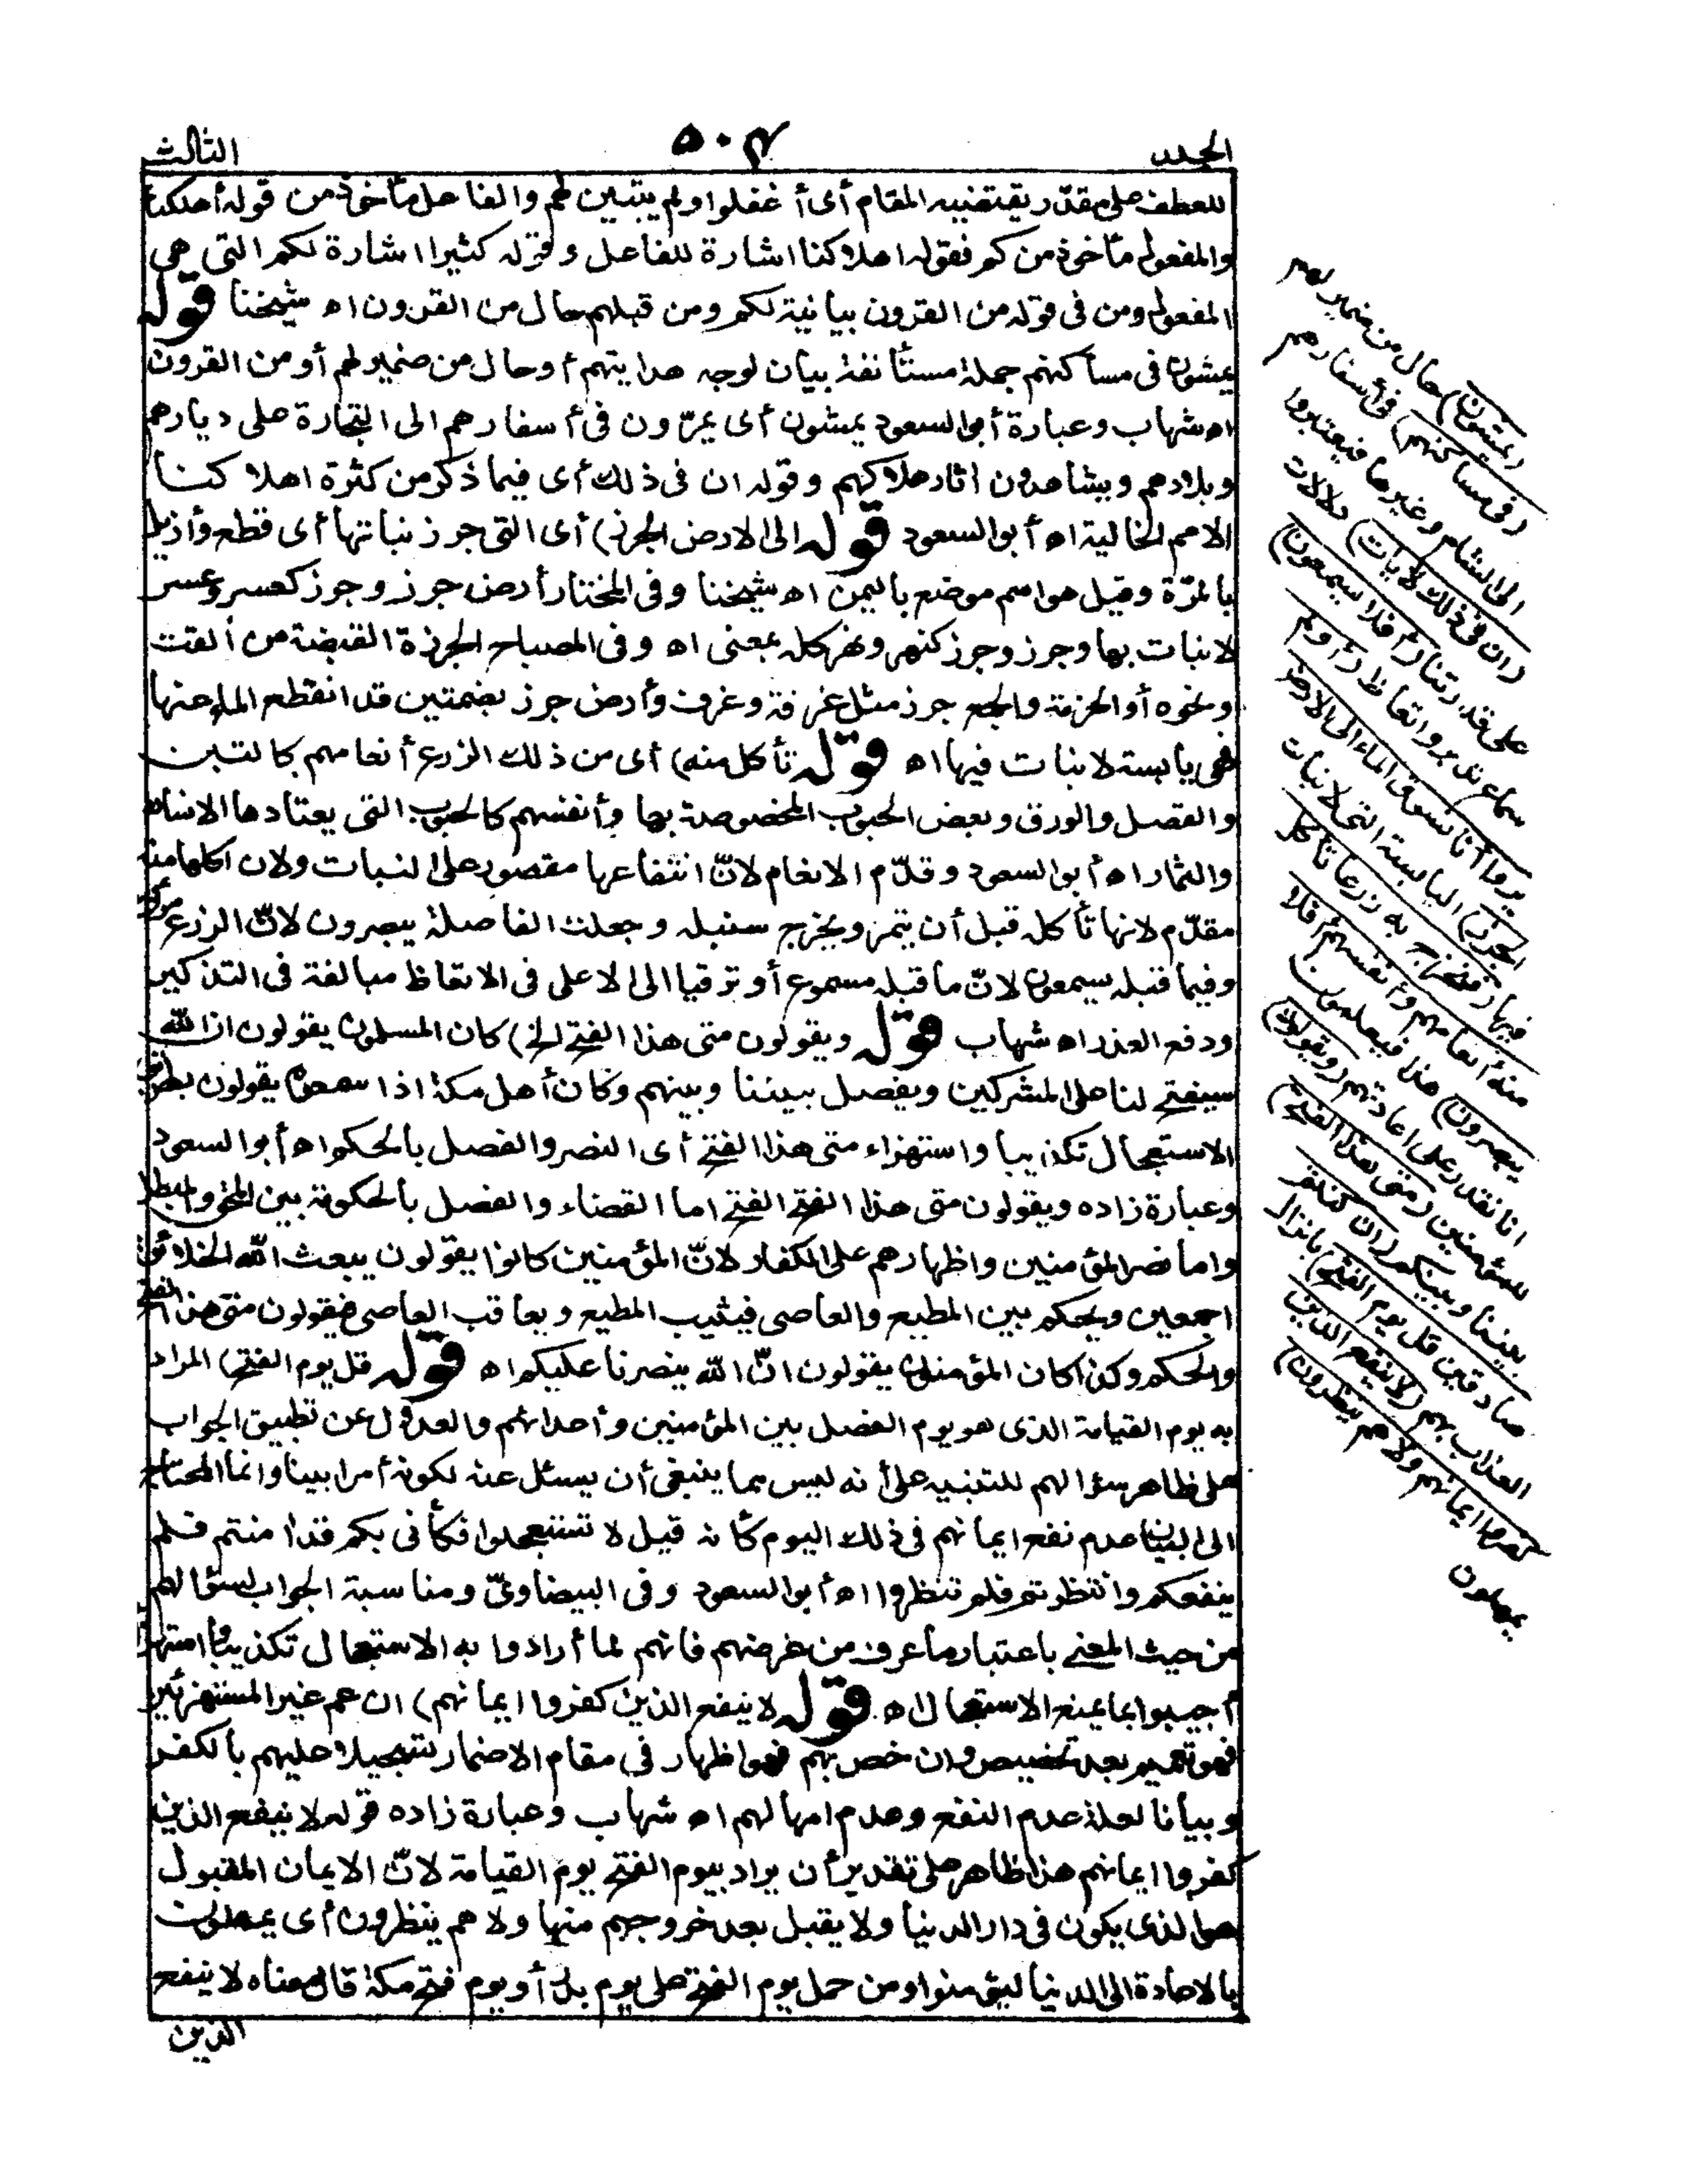 الجلد
٥٠٣
الثالث
للعطف على مقدّر يقتضيه المقام أى أ غفلوا ولم يتبين لهم والفاعل مأخوذ من قوله أهلكنا
والمفعول مأخوذ من كم فقوله اهلاكنا اشارة للفاعل وقوله كثيرا اشارة لكم التى هى
المفعول ومن فى قوله من القرون بيانية لكم ومن قبلهم حال من القرون اه شيخنا قوله
يمشون فى مساكنهم جملة مستأنفة بيان لوجه هدايتهم أو حال من ضمير لهم أو من القرون
اه شهاب وعبارة أبو السعود يمشون أى يمرّون فى أسفارهم الى التجارة على ديارهم
وبلادهم ويشاهدون اثار هلاكهم وقوله ان فى ذلك أى فيما ذكر من كثرة اهلاكنا
الامم الخالية اه أبو السعود قوله الى الارض الجرز) أى التى جرز نباتها أى قطع وأزيل
بالمرّة وقيل هو اسم موضع باليمن اه شيخنا وفى المختار أرض جرز وجرز كعسر وعسر
لا نبات بها وجرز وجرز كنهر ونهر كله بمعنى اه وفى المصباح الجرزة القبضة من ألقت
ونحوه أو الحزمة والجمع جرز مثل غرفة وغرف وأرض جرز بضمتين قد انقطع الماء عنها
فهى يابسة لا نبات فيها اه قوله تأكل منه) أى من ذلك الزرع أنعامهم كالتبن
والقصل والورق وبعض الحبوب المخصوصة بها وأنفسهم كالحبوب التى يعتادها الانسان
والثمار اه أبو السعود وقدّم الانعام لانّ انتفاعها مقصور على النبات ولان اكلها منه
مقدّم لانها تأكله قبل أن يثمر ويخرج سنبله وجعلت الفاصلة يبصرون لانّ الزرع مرئى
وفيما قبله يسمعون لانّ ما قبله مسموع أو ترقيا الى الاعلى فى الاتعاظ مبالغة فى التذكير
ودفع العذر اه شهاب قوله ويقولون متى هذا الفتح الخ) كان المسلمون يقولون ان الله
سيفتح لنا على المشركين ويفصل بيننا وبينهم وكان أهل مكة اذا سمعوه يقولون بطريق
الاستعجال تكذيبا واستهزاء متى هذا الفتح أى النصر والفصل بالحكم اه أبو السعود
وعبارة زاده ويقولون متى هذا الفتح الفتح اما القضاء والفصل بالحكومة بين المحق والمبطل
واما نصر المؤمنين واظهارهم على الكفار لانّ المؤمنين كانوا يقولون يبعث الله الخلائق
اجمعين ويحكم بين المطيع والعاصى فيثيب المطيع ويعاقب العاصى فيقولون متى هذا الفتح
والحكم وكذا كان المؤمنون يقولون انّ الله ينصرنا عليكم اه قوله قل يوم الفتح) المراد
به يوم القيامة الذى هو يوم الفصل بين المؤمنين وأعدائهم والعدول عن تطبيق الجواب
على ظاهر سؤالهم للتنبيه على أنه ليس مما ينبغى أن يسئل عنه لكونه أمرا بينا وانما المحتاج
الى البيان عدم نفع ايمانهم فى ذلك اليوم كأنه قيل لا تستعجلوا فكأنى بكم قد امنتم فلم
ينفعكم وانتظرتم فلم تنظروا اه أبو السعود وفى البيضاوىّ ومناسبة الجواب لسؤالهم
من حيث المعنى باعتبار ما عرف من غرضهم فانهم لما أرادوا به الاستعجال تكذيبا واستهزاء
أجيبوا بما يمنع الاستعجال اه قوله لا ينفع الذين كفروا ايمانهم) ان عم غير المستهزئين
فهو تعميم بعد تخصيص وان خص بهم فهو اظهار فى مقام الاضمار تسجيلا عليهم بالكفر
وبيانا لعلة عدم النفع وعدم امهالهم اه شهاب وعبارة زاده قوله لا ينفع الذين
كفروا ايمانهم هذا ظاهر على تقدير أن يراد بيوم الفتح يوم القيامة لانّ الايمان المقبول
هو الذى يكون فى دار الدنيا ولا يقبل بعد خروجهم منها ولا هم ينظرون أى يمهلون
بالاعادة الى الدنيا ليؤمنوا ومن حمل يوم الفتح على يوم بدر أو يوم فتح مكة قال معناه لا ينفع
الذين
(يمشون) حال من ضمير لهم
(فى مساكنهم) فى أسفارهم
الى الشام وغيرها فيعتبروا
(ان فى ذلك لآيات) دلالات
على قدرتنا (أفلا يسمعون)
سماع تدبر واتعاظ (أو لم
يروا أنا نسوق الماء الى الارض
الجرز) اليابسة التى لا نبات
فيها (فنخرج به زرعا تأكل
منه أنعامهم وأنفسهم أفلا
يبصرون) هذا فيعلمون
انا نقدر على اعادتهم (ويقولون)
للمؤمنين (متى هذا الفتح)
بيننا وبينكم (ان كنتم
صادقين قل يوم الفتح) بانزال
العذاب بهم (لا ينفع الذين
كفروا ايمانهم ولا هم ينظرون)
يمهلون